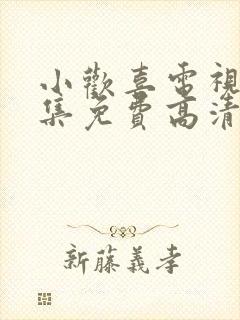 小歡喜電視
集免費高清
新藤義孝